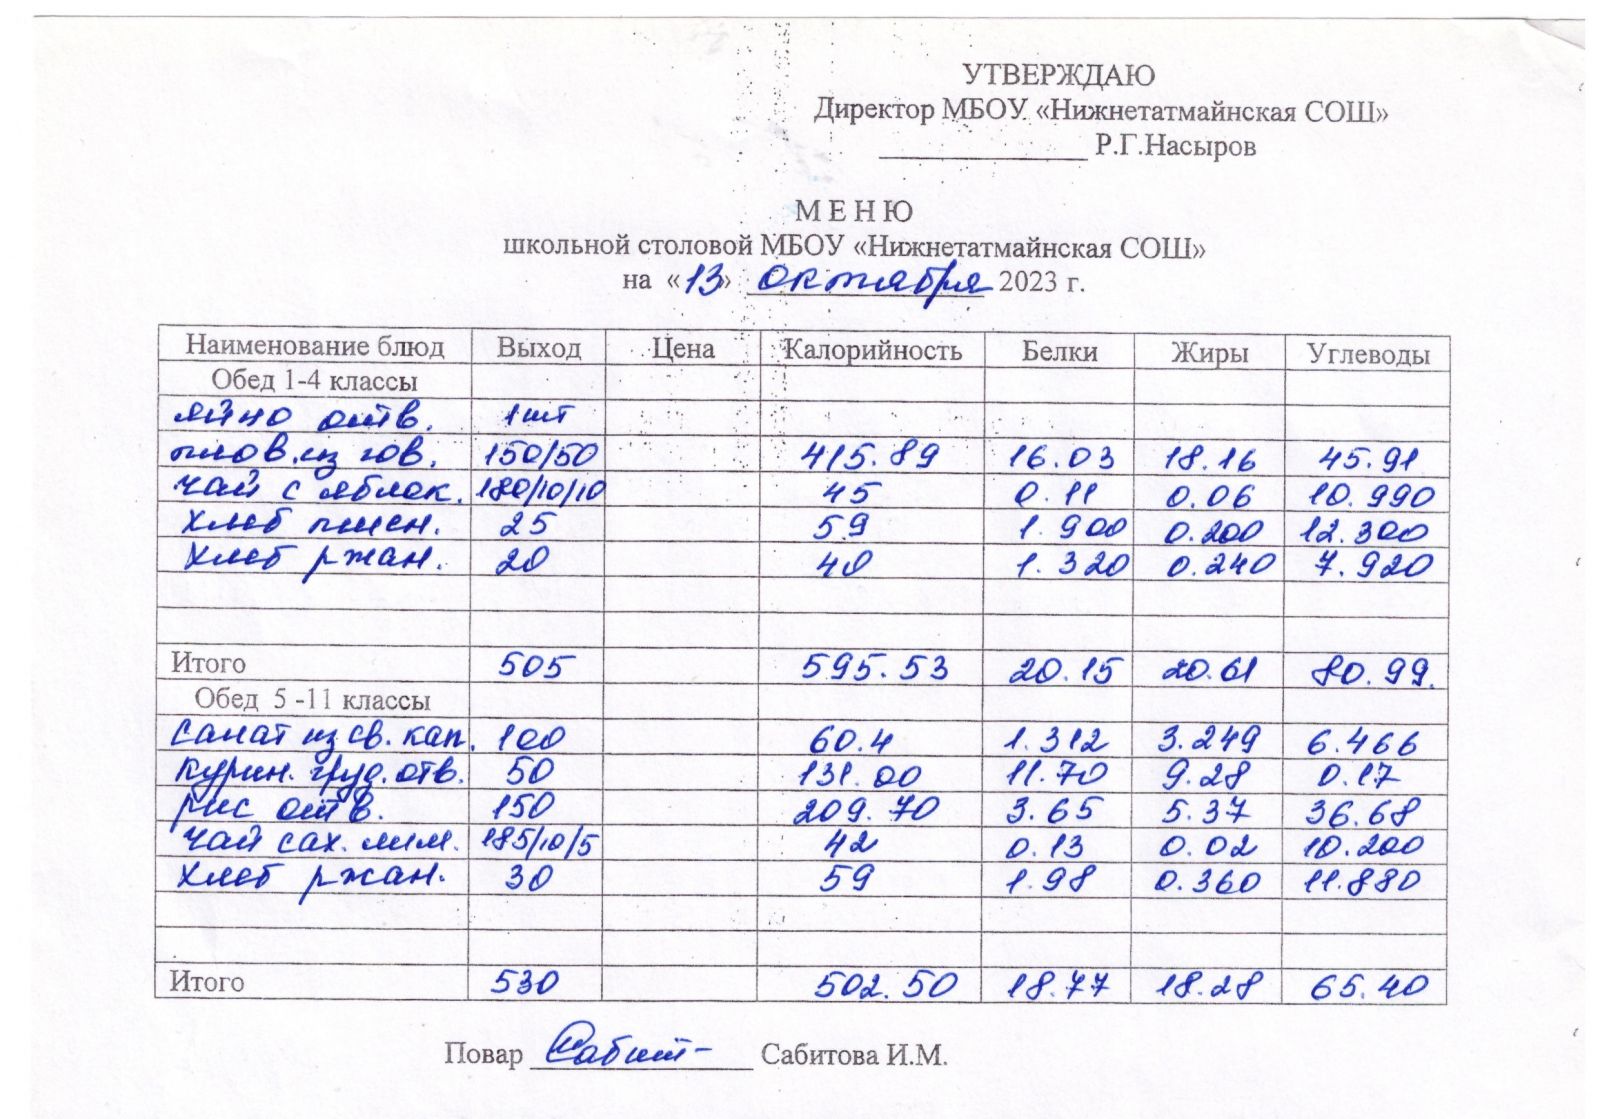 УТВЕРЖДАЮ
Директор МБОУ «Нижнетатмайнская СОШ»
Р.Г.Насыров
МЕНЮ
школьной столовой МБОУ «Нижнетатмайнская СОШ»
на «13» октября 2023 г.
Наименование блюд Выход Цена Калорийность Белки Жиры Углеводы
Обед 1-4 классы
яйцо отв. 1шт
плов.из гов. 150/50 415.89 16.03 18.16 45.91
чай с яблок. 180/10/10 45 0.11 0.06 10.990
хлеб пшен. 25 59 1.900 0.200 12.300
хлеб ржан. 20 40 1.320 0.240 7.920
Итого 505 595.53 20.15 20.61 80.99.
Обед 5 -11 классы
Салат из св. кап. 100 60.4 1.312 3.249 6.466
Курин. груд. отв. 50 131.00 11.70 9.28 0.17
рис отв. 150 209.70 3.65 5.37 36.68
чай сах. лим. 185/10/5 42 0.13 0.02 10.200
хлеб ржан. 30 59 1.98 0.360 11.880
Итого 530 502.50 18.77 18.28 65.40
Повар Сабит- Сабитова И.М.